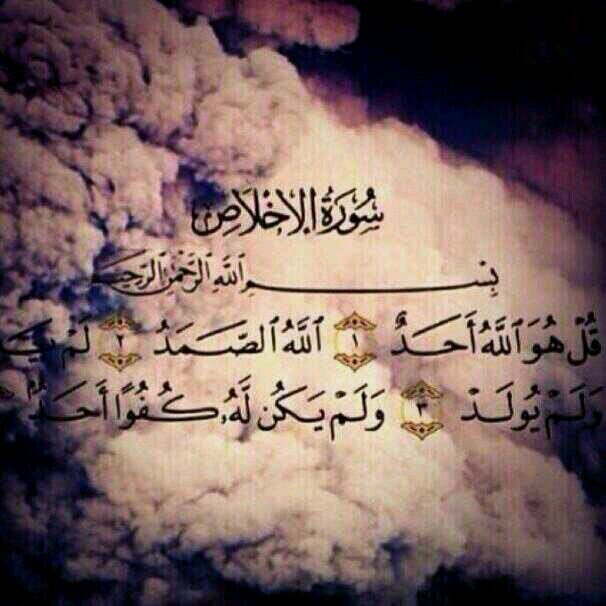 سُورَةُ الإِخْلَاصِ
بِسْمِ ٱللَّهِ ٱلرَّحْمَٰنِ ٱلرَّحِيمِ
قُلْ هُوَ ٱللَّهُ أَحَدٌ ١ ٱللَّهُ ٱلصَّمَدُ ٢ لَمْ
وَلَمْ يُولَدْ ٣ وَلَمْ يَكُن لَّهُۥ كُفُوًا أَحَدٌۢ